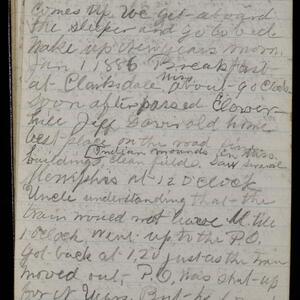 comes up. We get aboard
the sleeper and go to bed
wake up New Years morn.
Jan 1 1886 Breakfast
at Clarksdale Miss. about 9 o'clock
soon after passed Clover
hill Jeff Davis old home
best place on the road
Indian mounds in Miss.
buildings clean fields saw several
Memphis at 12 O'clock
Uncle understanding that the
train would not leave M. till
1 o'clock went up to the P.O.
got back at 1,20 just as the train
moved out, P.O. was shut up
for N Years. But